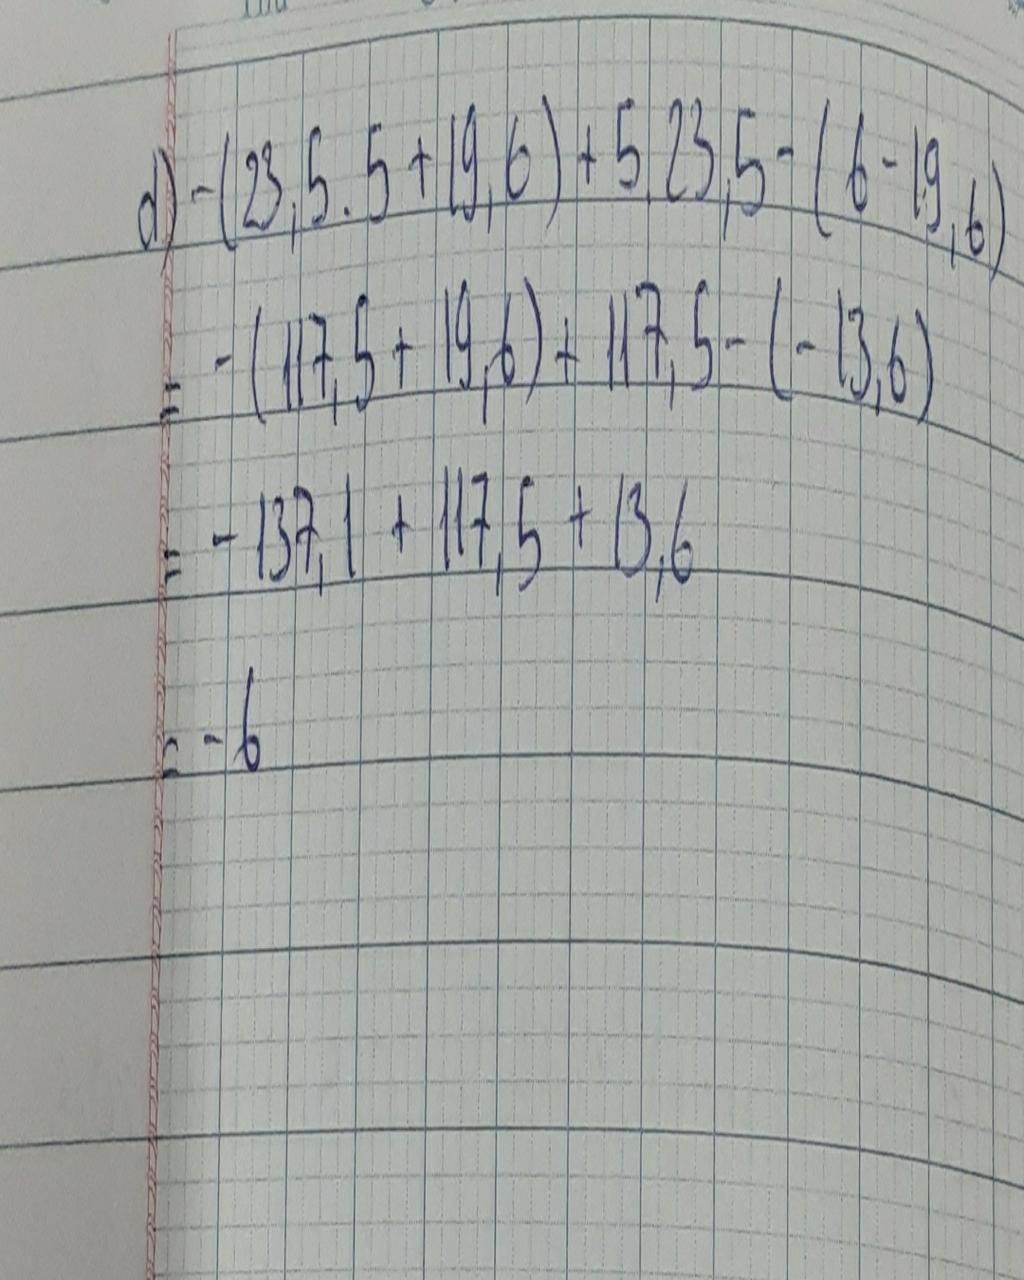 d) -(23,5.5+19,6)+5.23,5-(6-19,6)
= -(117,5+19,6)+117,5-(-13,6)
= -137,1+117,5+13,6
= -6